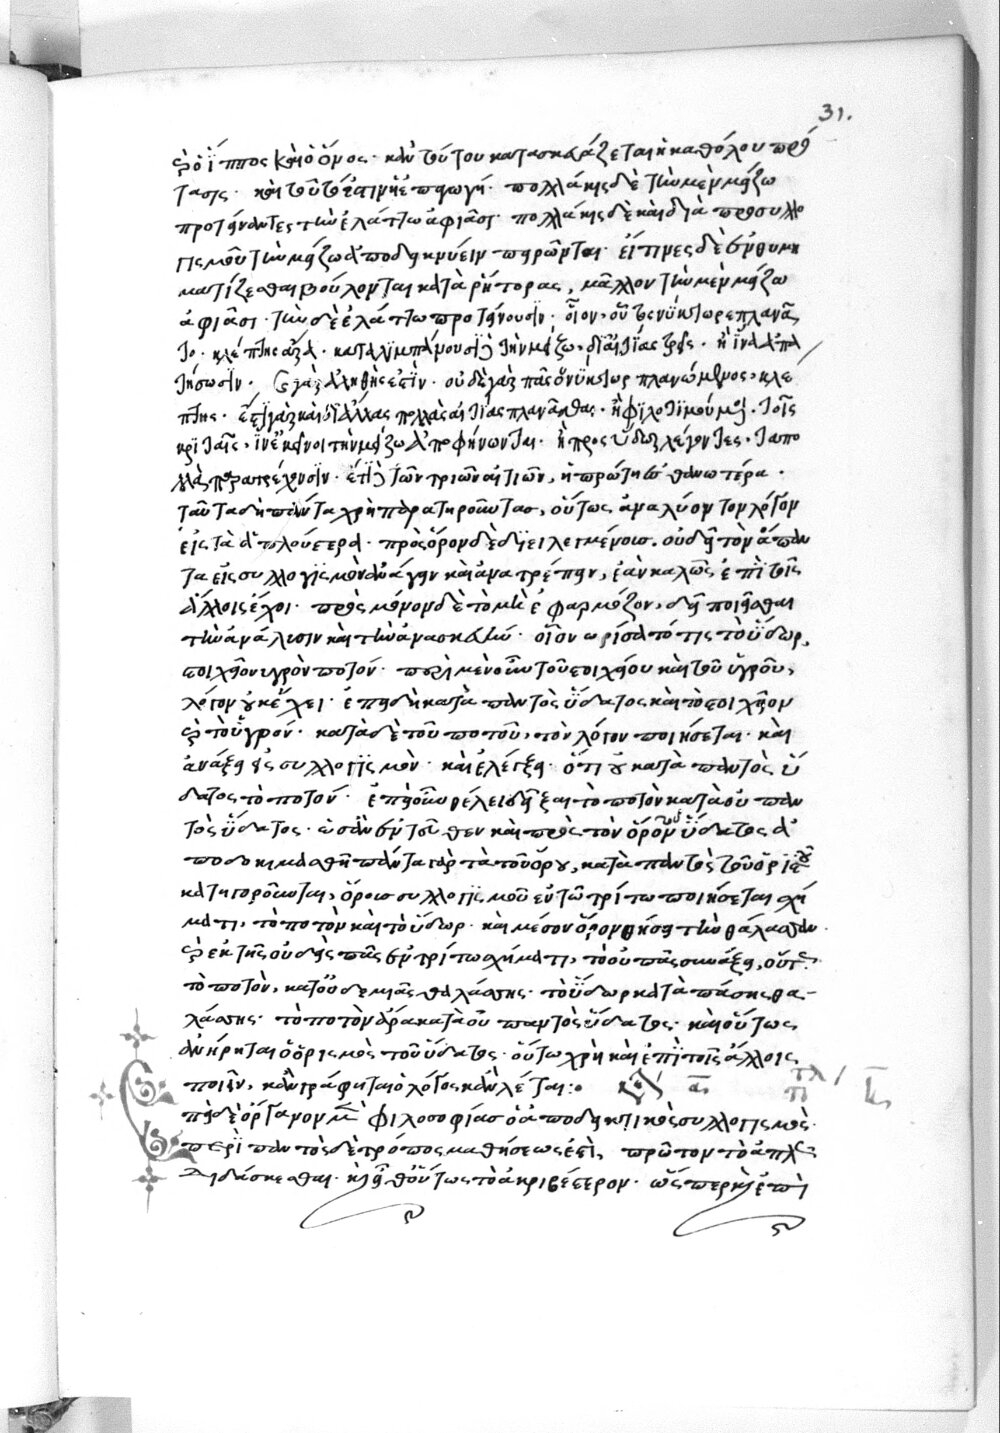 31.
καὶ ὁ ἵππος καὶ ὁ ὄνος· κἀν τούτου κατασκευάζεται ἡ καθόλου πρό
τασις· καὶ τοῦτό ἐστιν ἡ ἐπαγωγή· πολλάκις δὲ τὴν μὲν μείζω
προτείναντες τὴν ἐλάττω ἀφιᾶσι· πολλάκις δὲ καὶ διὰ προσυλλο
γισμοῦ τὴν μείζω ἀποδεικνύειν πειρῶνται· εἴ τινες δὲ ἐνθυμη
ματίζεσθαι βούλονται κατὰ ῥήτορας, μᾶλλον τὴν μὲν μείζω
ἀφιᾶσι· τὴν δὲ ἐλάττω προτείνουσιν· οἷον, οὗτος νύκτωρ ἐπλανᾶ
το· κλέπτης ἄρα· καταλιμπάνουσι δὲ τὴν μείζω, διὰ αἰτίας τρεῖς· ἢ ἵνα ἀπα
τήσωσιν· οὐ γὰρ ἀληθὴς ἐστὶν· οὐδὲ γὰρ πᾶς ὁ νύκτωρ πλανώμενος, κλέ
πτης· ἔστι γὰρ καὶ δι' ἄλλας πολλὰς αἰτίας πλανᾶσθαι· ἢ φιλοτιμούμενοι τοῖς
κριταῖς, ἵν' ἐκεῖνοι τὴν μείζω ἀποφήνωνται· ἢ πρὸς ὕδωρ λέγοντες· τὰ πο
λλὰ παρατρέχουσιν· ἔστι δὲ τῶν τριῶν αἰτιῶν, ἡ πρώτη πιθανωτέρα·
ταῦτα δὴ πάντα χρὴ παρατηροῦντας, οὕτως ἀναλύειν τὸν λόγον
εἰς τὰ ἁπλούστερα· πρὸς ὅρον δὲ διειλεγμένοις, οὐ δεῖ τὸν ἅπαν
τα εἰς συλλογισμὸν ἀνάγειν καὶ ἀνατρέπειν, ἐὰν καλῶς ἐπὶ τοῖς
ἄλλοις ἔχοι· πρὸς μόνον δὲ τὸ μὴ ἐφαρμόζον, δεῖ ποιεῖσθαι
τὴν ἀνάλυσιν καὶ τὴν ἀνασκευήν· οἷον ὡρίσατό τις τὸ ὕδωρ,
στοιχεῖον ὑγρὸν ποτόν· περὶ μὲν οὖν τοῦ στοιχείου καὶ τοῦ ὑγροῦ,
λόγον οὐκ ἔχει· ἐπειδὴ κατὰ παντὸς ὕδατος καὶ τὸ στοιχεῖον
καὶ τὸ ὑγρόν· κατὰ δὲ τοῦ ποτοῦ, τὸν λόγον ποιήσεται· καὶ
ἀνάξει εἰς συλλογισμὸν· καὶ ἐλέγξει· ὅτι οὐ κατὰ παντὸς ὕ
δατος τὸ ποτόν· ἐπεὶ οὖν δέδεικται τὸ ποτὸν κατὰ οὐ παν
τὸς ὕδατος· ὡσὰν ἐντεῦθεν καὶ πρὸς τὸν ὅρον τοῦ ὕδατος ἀ
ποδοκιμασθῇ πάντα γὰρ τὰ τοῦ ὅρου, κατὰ παντὸς τοῦ ὁριστοῦ
κατηγοροῦνται, ὅρος συλλογισμοῦ ἐν τῷ τρίτῳ ποιήσεται σχή
ματι, τὸ ποτὸν καὶ τὸ ὕδωρ· καὶ μέσον ὅρον θήσει τὴν θάλασσαν·
καὶ ἐκ τῆς οὐδεὶς πᾶς ἐν τρίτῳ σχήματι, τὸ οὐ πᾶς συνάξει, οὕτως·
τὸ ποτὸν, κατ' οὐδεμιᾶς θαλάσσης· τὸ ὕδωρ κατὰ πάσης θα-
λάσσης· τὸ ποτὸν ἄρα κατὰ οὐ παντὸς ὕδατος· καὶ οὕτως
ἀνῄρηται ὁ ὁρισμὸς τοῦ ὕδατος· οὕτω χρὴ καὶ ἐπὶ τοῖς ἄλλοις
ποιεῖν, κἂν γράφηται ὁ λόγος κἂν λέγηται:
Ἐπεὶ δὲ ὄργανον μὲν φιλοσοφίας ὁ ἀποδεικτικὸς συλλογισμός·
περὶ παντὸς δὲ τρόπος μαθήσεως ἐστὶ, πρῶτον τὸ ἁπλῶς
διδάσκεσθαι· καὶ εἶθ' οὕτως τὸ ἀκριβέστερον· ὥσπερ καὶ ἐπὶ